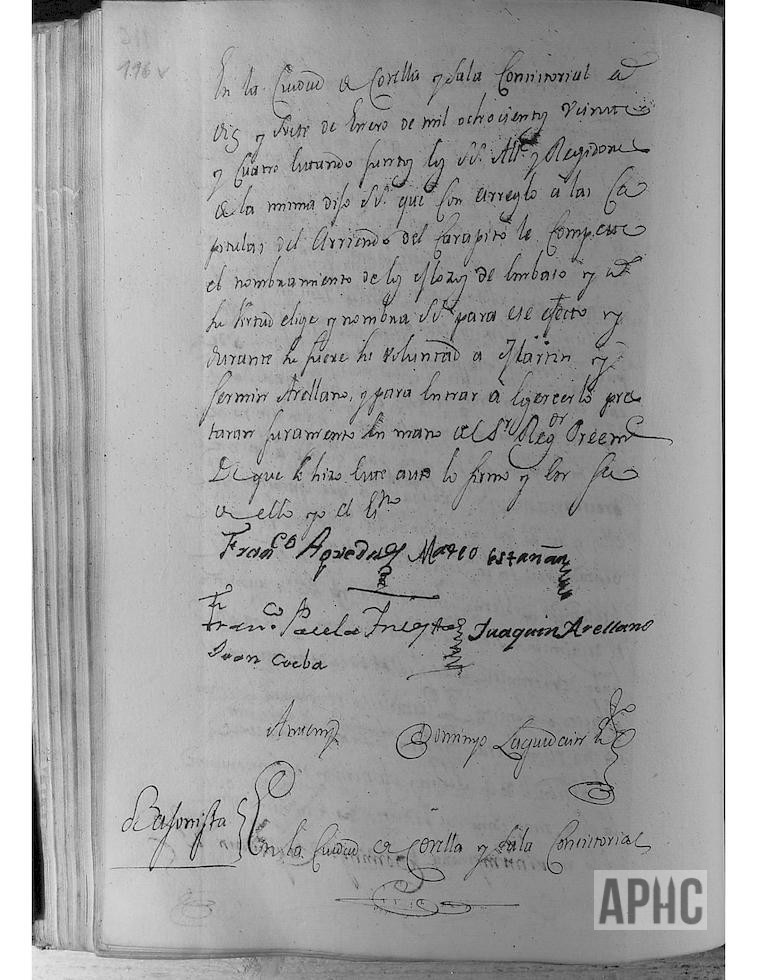 196 v
En la Ciudad de Corella y Sala Consistorial a
diez y siete de Enero de mil ochocientos veinte
y cuatro estando juntos los SS. Alc.e y Regidores
de la misma dijo SS.a que con arreglo a las Ca
pitulas del Arriendo del Carapito le compete
el nombramiento de los Mozos de embaso y en
su virtud elige y nombra SS.a para ese efecto y
durante su fuere su voluntad a Martin y
Fermin Arellano, y para entrar a egercerlo pres
taran juramento en mano del S.r Reg.or Preem.e
De que se hizo este auto lo firmo y por fee
de ello yo el Es.no
Fran.co Aguedas Mateo estañan
Fran.co Paula Juaquin Arellano
Juan cueba
Antemi Domingo Laquidain
Bajonista
En la Ciudad de Corella y Sala Consistorial
APHC